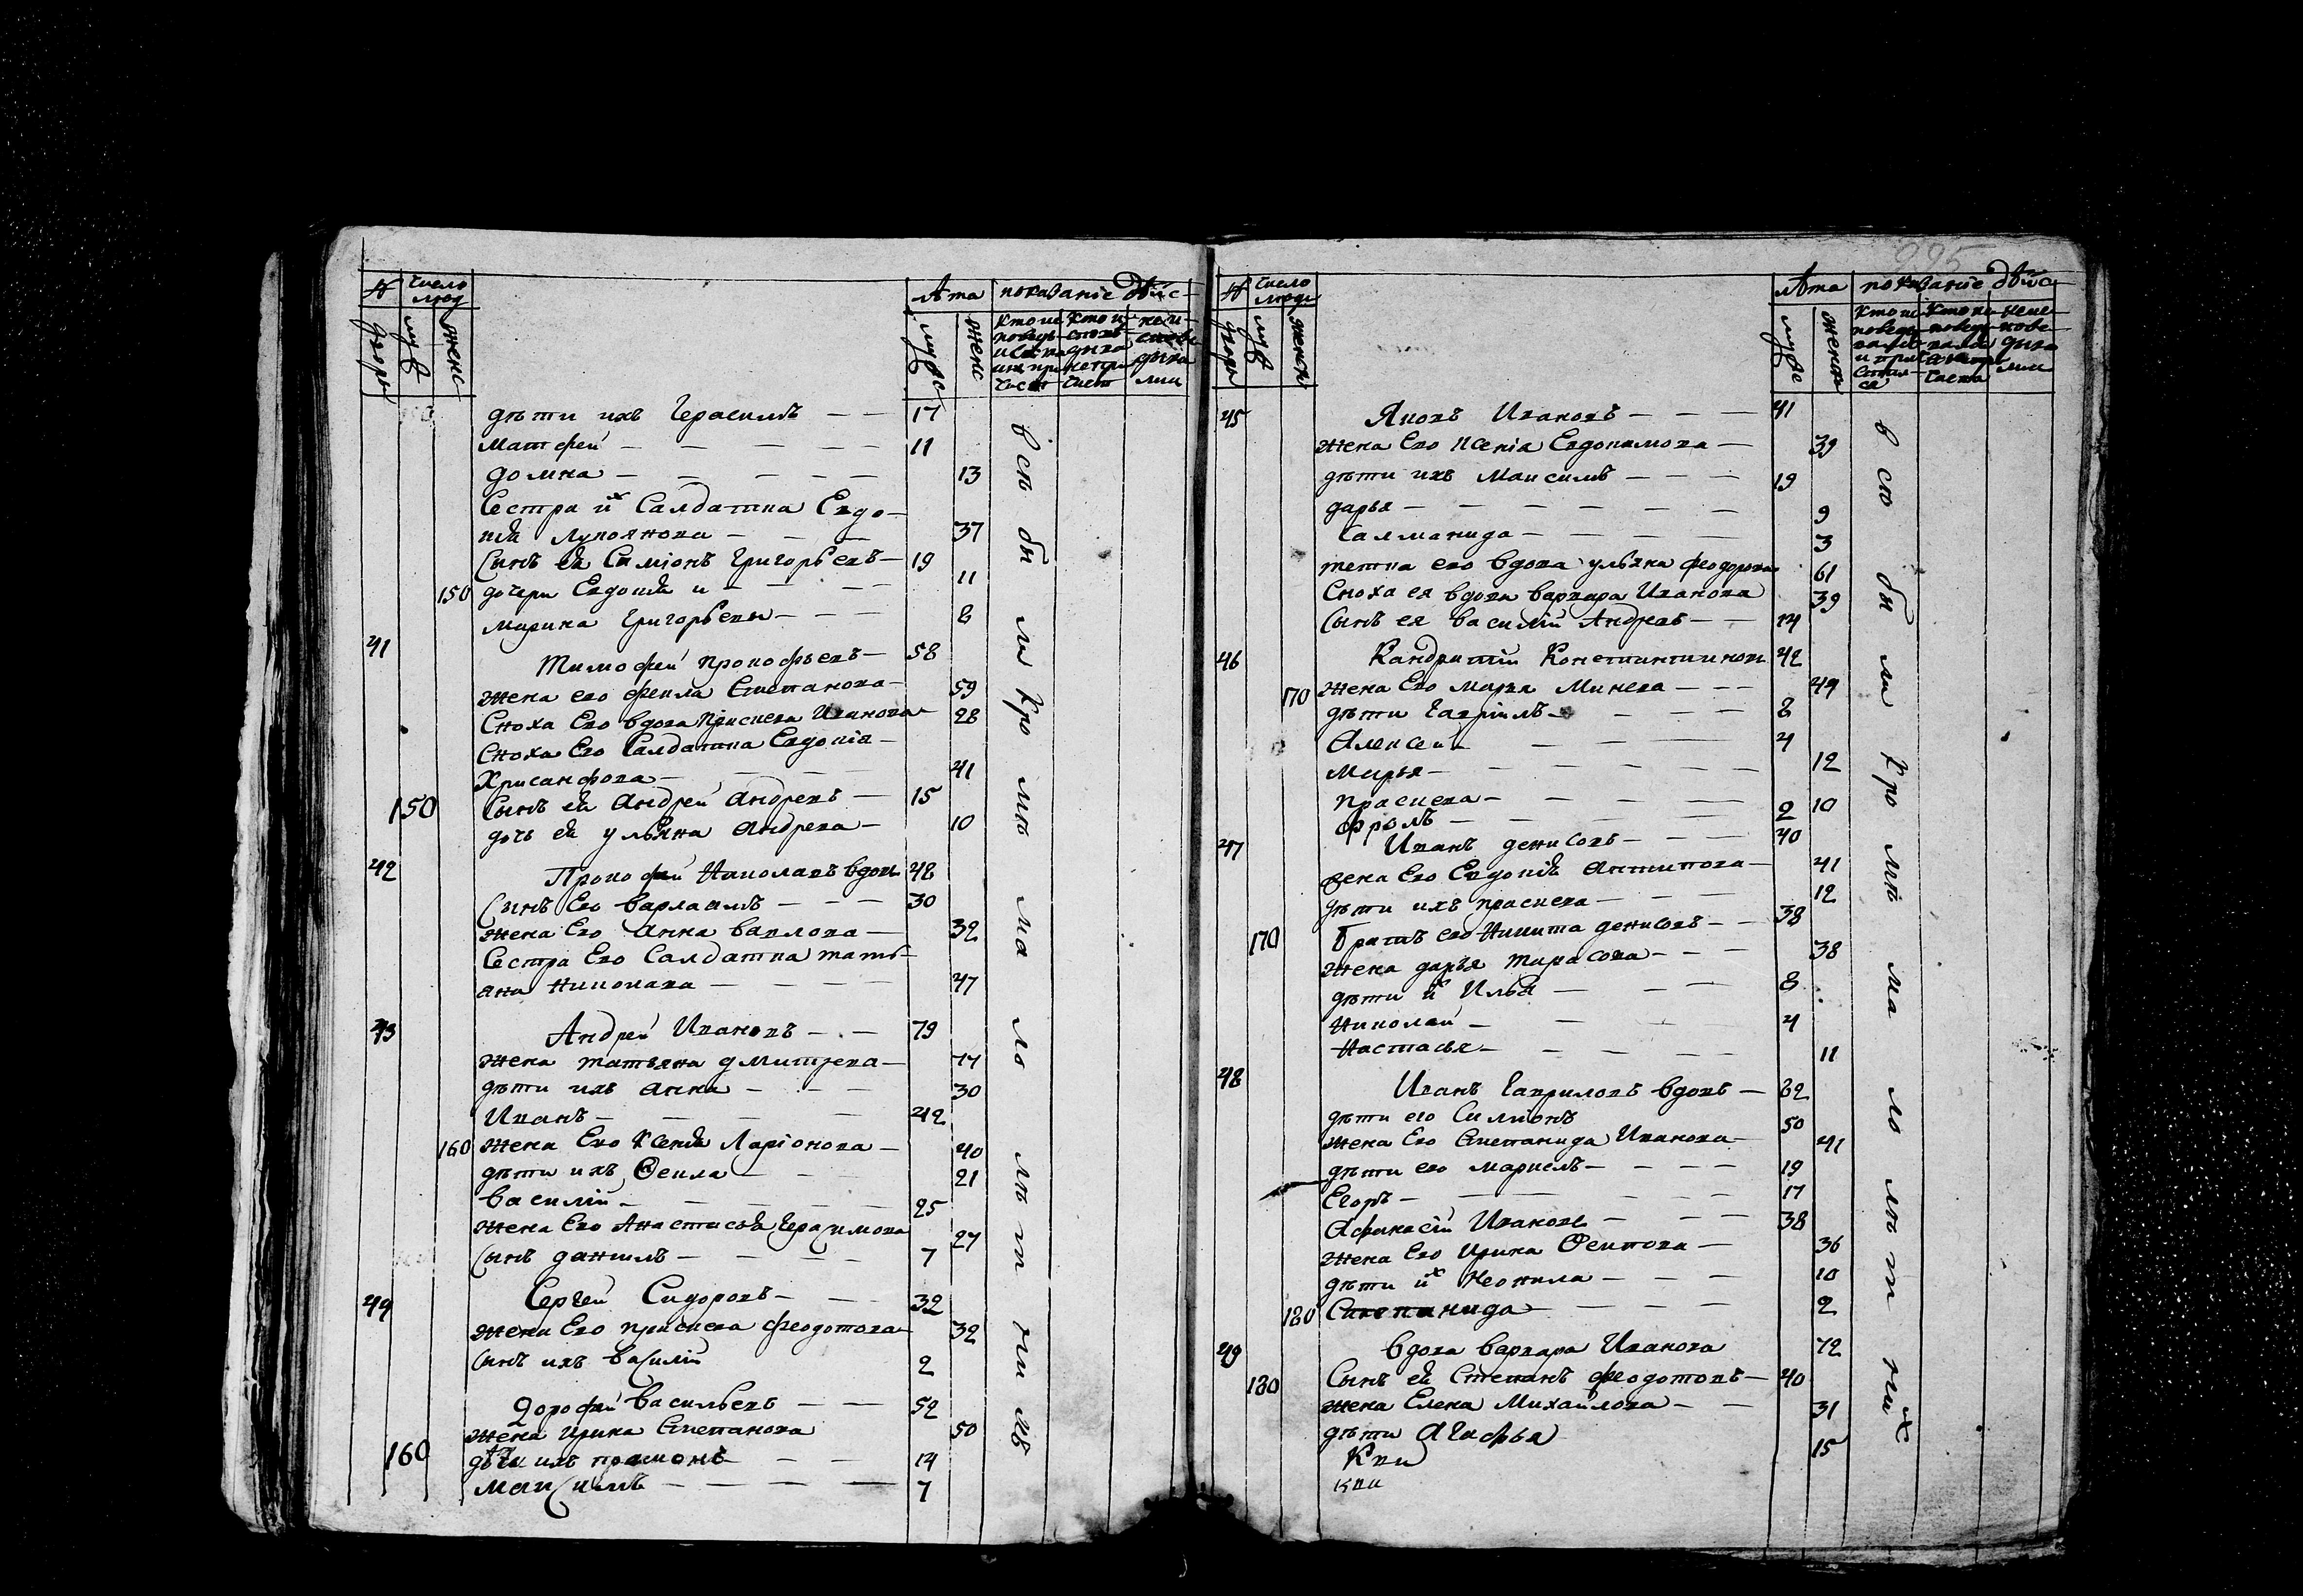 № число люд Лѣта показаніе дѣйс-
дворы муж женс муже женс
дѣти ихъ Герасимъ — — 17
Матфей — — — — 11
домна — — — — — 13
Сестра их Салдатка Евдо-
кія Лукоянова — — — 37
Сынъ ея Симіонъ Григорьевъ — 19
150 дочери Евдокія и — — — 11
Марина Григорьевы — — — 8
41 Тимофей Прокофьевъ — 58
жена его фекла Степанова — 59
Сноха Его вдова Прасковья Иванова — 28
Сноха Его Салдатка Евдокія —
Хрисанфова — — — — 41
150 Сынъ ея Андрей Андревъ — 15
дочь ея ульяна Андрева — 10
42 Прокофей Николаевъ вдовъ 48
Сынъ Его Варлаамъ — — — 30
жена Его Анна Павлова — 32
Сестра Его Салдатка тать-
яна Николаева — — — — 47
43 Андрей Ивановъ — — 79
жена татьяна дмитрева — 77
дѣти ихъ Анна — — — 30
Иванъ — — — — 42
160 жена Его Ксенія Ларіонова — 40
дѣти ихъ Ѳекла — — — 21
Василій — — — — 25
жена Его Анастасья Герасимова 27
Сынъ данилъ — — — — 7
44 Сергей Сидоровъ — — 32
жена Его праскева феодотова — 32
Сынъ ихъ Василій 2
Дорофей Васильевъ — — 52
жена Ирина Степанова 50
160 дѣти ихъ — — 14
Максимъ — — — — 7
в сѣ бы ли кро мѣ ма ло лѣ т ни хъ
225
№ число люди лѣта показаніе дѣйс
дворы муж женск муже женск
45 Яковъ Ивановъ — — — 41
жена Его Ксенія Евдокимова — 39
дѣти ихъ Максимъ — — — 19
дарья — — — — — — 9
Салманида — — — — — 3
тетка его вдова ульяна феодорова 61
Сноха ея вдова варвара Иванова 39
Сынъ ея василій Андревъ — — 14
46 Кандратій Константиновъ 42
170 жена Его марья Минева — — — 49
дѣти Гавріилъ — — — — 8
Алексей — — — — 4
Марья — — — — — — 12
праскева — — — — — 10
фролъ — — — — — 2
47 Иванъ денисовъ — — — 40
жена Его Евдокія Антипова — 41
дѣти ихъ праскева — — — — 12
170 братъ его Никита денисовъ — — 38
жена дарья тарасова — — — 38
дѣти их Илья — — — 8
Николай — — — — 4
Настасья — — — — — 11
48 Иванъ Гавриловъ вдовъ — 82
дѣти его Симіонъ 50
жена Его Степанида Иванова — 41
дѣти его маркелъ — — — — 19
Егоръ — — — — — — 17
Афанасій Ивановъ — — — 38
жена Его Ирина Ѳеитова — 36
дѣти их Неонила — — — 10
180 Степанида — — — — 2
49 вдова варвара Иванова 72
180 Сынъ ея Степанъ феодотовъ — 40
жена Елена Михайлова — — 31
дѣти Агафья 15
в сѣ бы ли кро мѣ ма ло лѣ т ни х